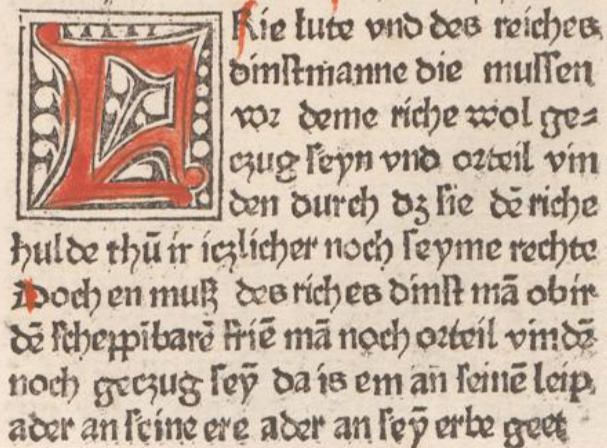 Frie lute vnd des reiches
dinstmanne die mussen
vor deme riche wol ge=
czug seyn vnd orteil vin
den durch dz sie dē riche
hulde thū ir iczlicher noch seyme rechte
Doch en muß des riches dinst mā obir
dē scheppībarē friē mā noch orteil vindē
noch geczug seȳ da is em an seinē leip
ader an seine ere ader an seȳ erbe geet